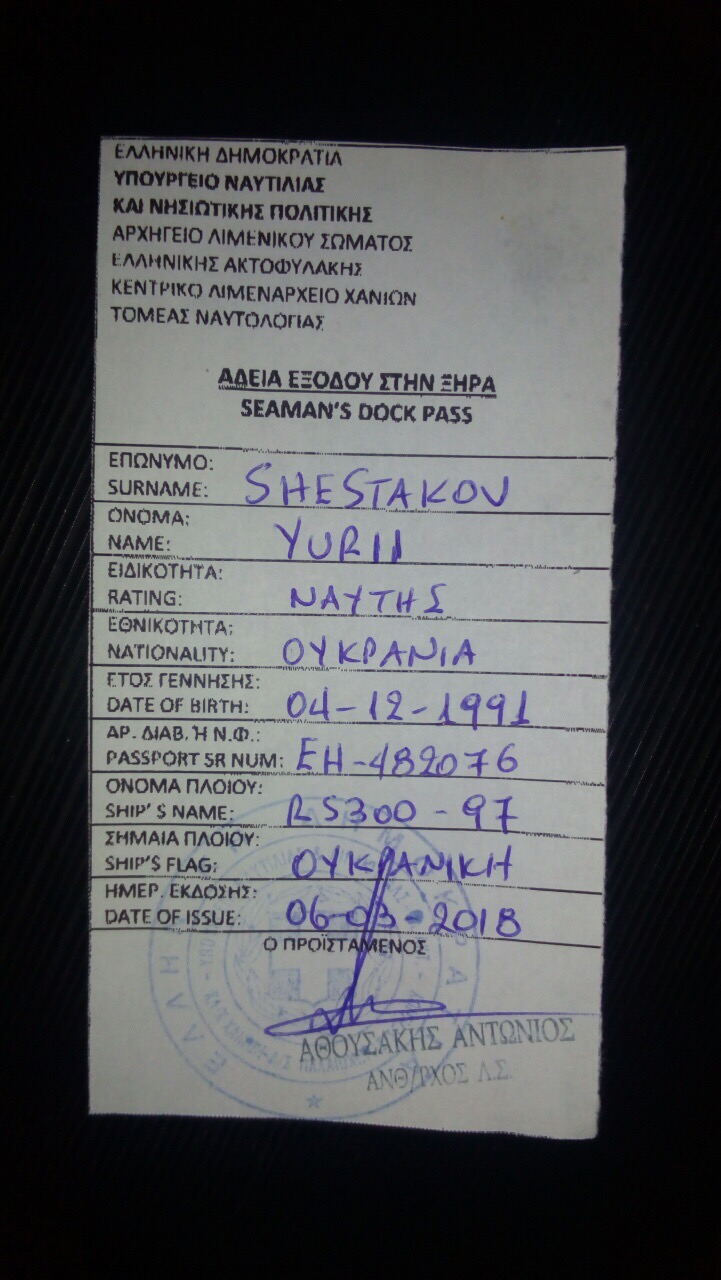 ΕΛΛΗΝΙΚΗ ΔΗΜΟΚΡΑΤΙΑ
ΥΠΟΥΡΓΕΙΟ ΝΑΥΤΙΛΙΑΣ
ΚΑΙ ΝΗΣΙΩΤΙΚΗΣ ΠΟΛΙΤΙΚΗΣ
ΑΡΧΗΓΕΙΟ ΛΙΜΕΝΙΚΟΥ ΣΩΜΑΤΟΣ
ΕΛΛΗΝΙΚΗΣ ΑΚΤΟΦΥΛΑΚΗΣ
ΚΕΝΤΡΙΚΟ ΛΙΜΕΝΑΡΧΕΙΟ ΧΑΝΙΩΝ
ΤΟΜΕΑΣ ΝΑΥΤΟΛΟΓΙΑΣ
ΑΔΕΙΑ ΕΞΟΔΟΥ ΣΤΗΝ ΞΗΡΑ
SEAMAN'S DOCK PASS
ΕΠΩΝΥΜΟ:
SURNAME: SHESTAKOV
ΟΝΟΜΑ:
NAME: YURII
ΕΙΔΙΚΟΤΗΤΑ:
RATING: ΝΑΥΤΗΣ
ΕΘΝΙΚΟΤΗΤΑ:
NATIONALITY: ΟΥΚΡΑΝΙΑ
ΕΤΟΣ ΓΕΝΝΗΣΗΣ:
DATE OF BIRTH: 04-12-1991
ΑΡ. ΔΙΑΒ. Ή Ν.Φ.:
PASSPORT SR NUM: EH-482076
ΟΝΟΜΑ ΠΛΟΙΟΥ:
SHIP'S NAME: RS300-97
ΣΗΜΑΙΑ ΠΛΟΙΟΥ:
SHIP'S FLAG: ΟΥΚΡΑΝΙΚΗ
ΗΜΕΡ. ΕΚΔΟΣΗΣ:
DATE OF ISSUE: 06-03-2018
Ο ΠΡΟΪΣΤΑΜΕΝΟΣ
ΑΘΟΥΣΑΚΗΣ ΑΝΤΩΝΙΟΣ
ΑΝΘ/ΡΧΟΣ Λ.Σ.